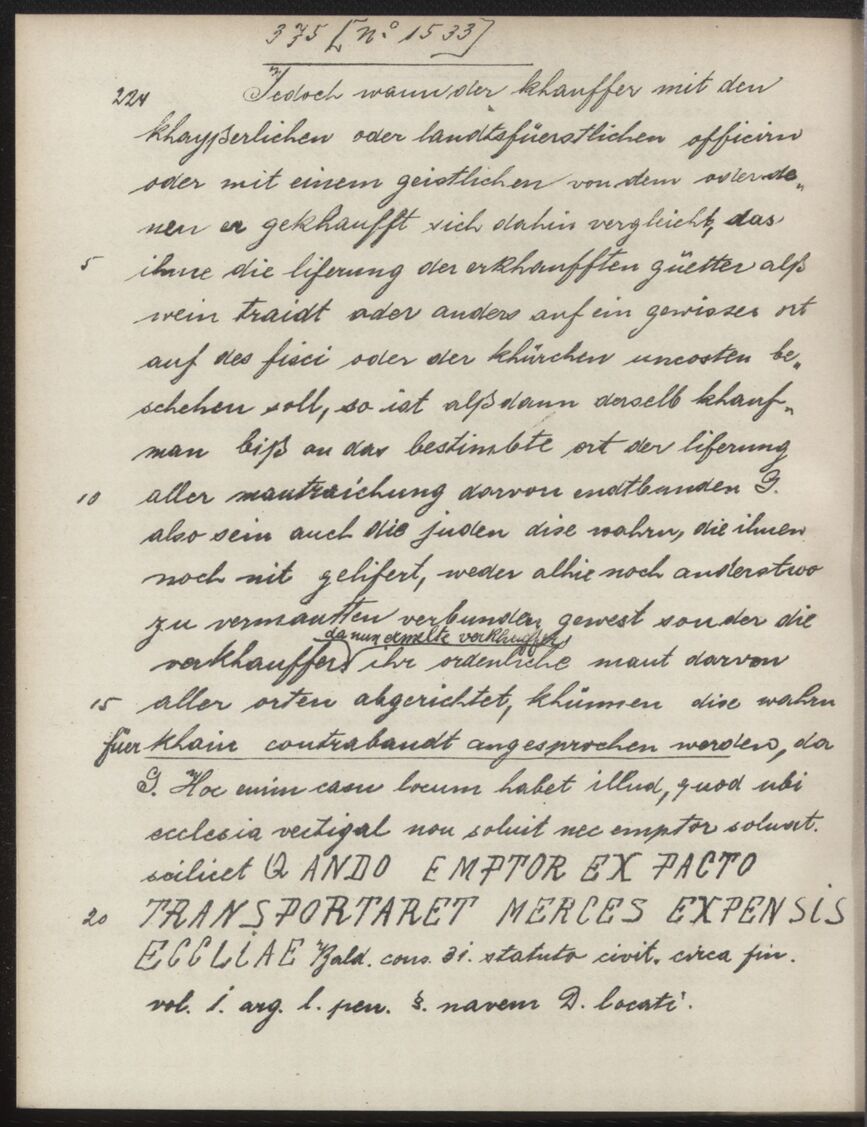 375 [No 1533]
224 Jedoch wann der khauffer mit den
khayßerlichen oder landtsfüerstlichen officirn
oder mit einem geistlichen von dem oder de„
nen er gekhaufft sich dahin vergleicht, das
5 ihme die liferung der erkhaufften güetter alß
wein traidt oder anders auf ein gewisses ort
auf des fisci oder der khürchen uncosten be„
schehen soll, so ist alßdann derselb khauf„
man biß an das bestimbte ort der liferung
10 aller mautraichung darvon endtbunden G.
also sein auch die juden dise wahrn, die ihnen
noch nit gelifert, weder alhie noch anderstwo
zu vermautten verbunden gewest sonder die
da nun ermelte verkhauffer
verkhauffer) ihr ordenliche maut darvon
15 aller orten abgerichtet, khünnen dise wahrn
füer khain contrabandt angesprochen werden, da
G. Hoc enim casu locum habet illud, quod ubi
ecclesia vectigal non soluit nec emptor soluat.
scilicet Q ANDO EMPTOR EX PACTO
20 TRANSPORTARET MERCES EXPENSIS
ECCLIAE Bald. cons. 31. statuto civit. circa fin.
vol. 1. arg. l. pen. §. navem D. locati.